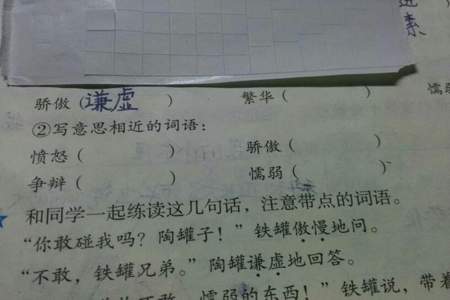 素
骄傲(谦虚) 繁华( ) 懦
②写意思相近的词语：
愤怒( ) 骄傲( )
争辩( ) 懦弱( )
和同学一起练读这几句话，注意带点的词语。
“你敢碰我吗？陶罐子！”铁罐傲慢地问。
“不敢，铁罐兄弟。”陶罐谦虚地回答。
懦弱的东西！”铁罐说，带着